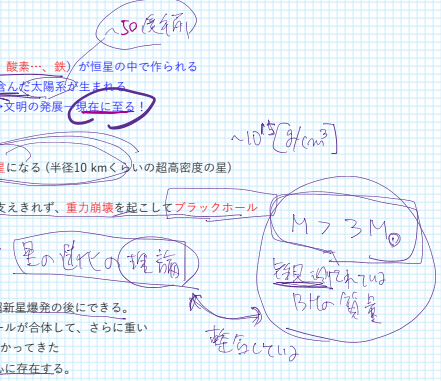 ~50億年前
酸素…、鉄）が恒星の中で作られる
含んだ太陽系が生まれる
文明の発展→現在に至る！
~10¹⁵[g/cm³]
星になる (半径10 kmくらいの超高密度の星)
支えきれず、重力崩壊を起こしてブラックホール
M > 3 M⊙
星の進化の理論
観測されている
BHの質量
超新星爆発の後にできる。
ールが合体して、さらに重い
整合している
かってきた
心に存在する。